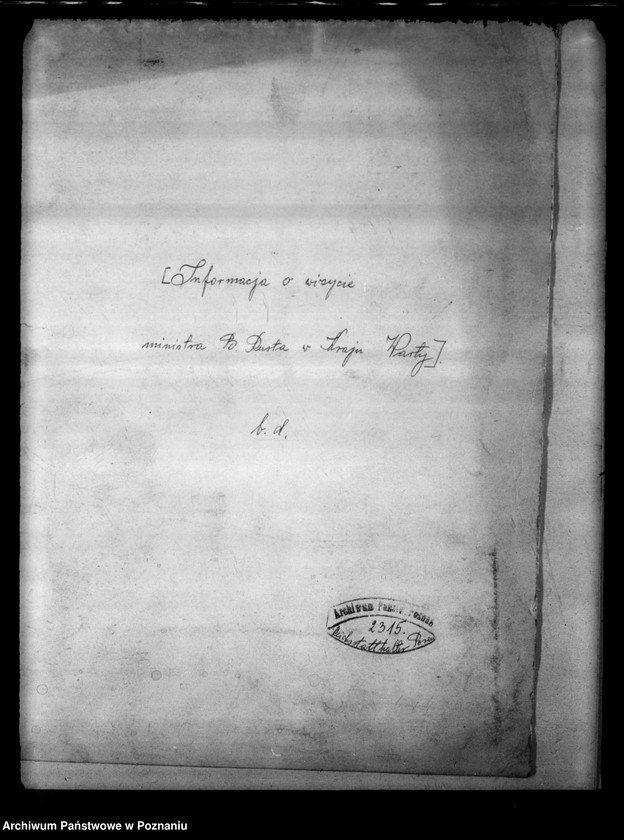 [Informacja o wizycie
ministra B. Rusta w Kraju Warty]
b. d.
Archiwum Państw. Poznań
2315.
Reichsstatthalter Posen
Archiwum Państwowe w Poznaniu